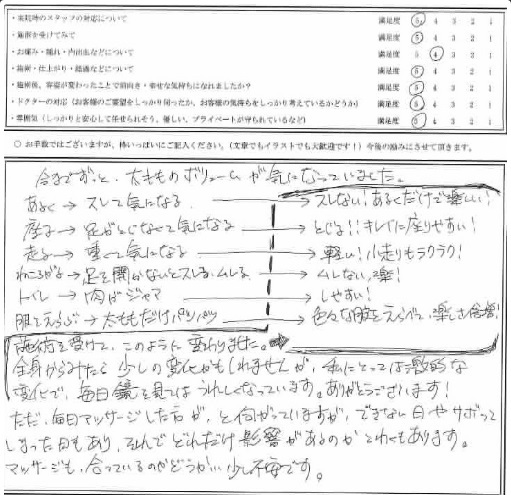 ・来院時のスタッフの対応について 満足度 5 4 3 2 1
・施術を受けてみて 満足度 5 4 3 2 1
・お痛み・腫れ・内出血などについて 満足度 5 4 3 2 1
・施術・仕上がり・経過などについて 満足度 5 4 3 2 1
・施術後、容姿が変わったことで前向き・幸せな気持ちはなれましたか？ 満足度 5 4 3 2 1
・ドクターの対応（お客様のご要望をしっかり伺ったか、お客様の気持ちをしっかり考えているかどうか） 満足度 5 4 3 2 1
・雰囲気（しっかりと安心して任せられそう、優しい、プライベートが守られているなど） 満足度 5 4 3 2 1
○ お手数ではございますが、枠いっぱいにご記入ください。（文章でもイラストでも大歓迎です！）今後の励みにさせて頂きます。
今までずっと、太もものボリュームが気になっていました。
あるく→スレて気になる → スレない！あるくだけで楽しい！
座る→足がとじなくて気になる → とじる！！キレイに座りやすい！
走る→重くて気になる → 軽い！小走りもラクラク！
ねころがる→足を開かないとスレる、ムレる → ムレない、楽！
トイレ→肉がジャマ → しやすい！
服をえらぶ→太ももだけパツパツ → 色々な服をえらべて、楽しさ倍増！
施術を受けて、このように変わりました。
全身からみたら少しの変化かもしれませんが、私にとっては激的な
変化で、毎日鏡を見てはうれしくなっています。ありがとうございます！
ただ、毎日マッサージした方が、と伺がっていますが、できない日やサボって
しまった日もあり、それでどれだけ影響があるのかこわくもあります。
マッサージも、合っているのかどうかが少し不安です。